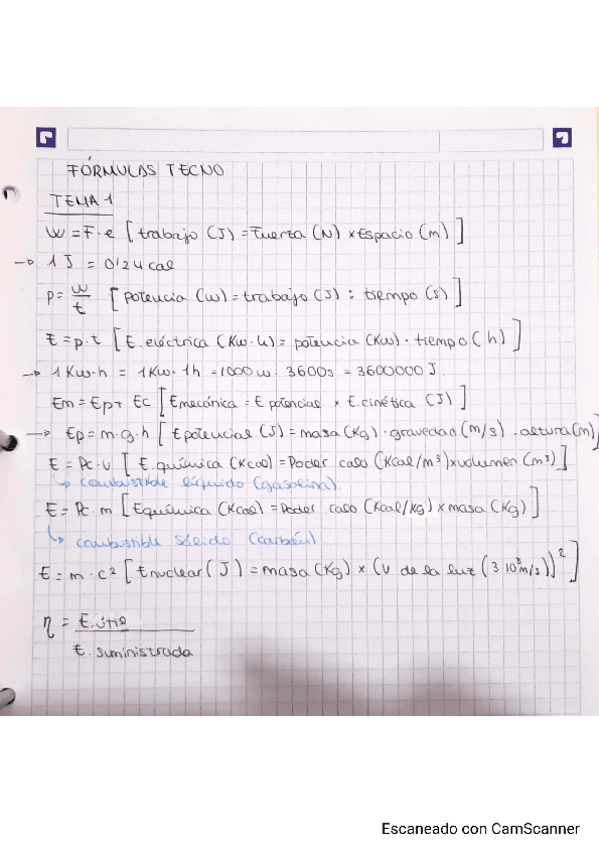 FÓRMULAS TECNO
TEMA 1
W = F · e [trabajo (J) = Fuerza (N) × Espacio (m)]
→ 1 J = 0'24 cal
P = w/t [potencia (w) = trabajo (J) : tiempo (s)]
E = p · t [E. eléctrica (Kw·h) = potencia (Kw) · tiempo (h)]
→ 1 Kw·h = 1Kw · 1h = 1000 w · 3600s = 3600000 J.
Em = Ep + Ec [Emecánica = E potencial × E. cinética (J)]
→ Ep = m · g · h [Epotencial (J) = masa (Kg) · gravedad (m/s) · altura (m)]
E = Pc · v [E. química (Kcal) = Poder calo (Kcal/m³) × volumen (m³)]
↳ combustible líquido (gasolina).
E = Pc · m [Equímica (Kcal) = Poder calo (Kcal/Kg) × masa (Kg)]
↳ combustible sólido (carbón)
E = m · c² [Enuclear (J) = masa (Kg) × (v de la luz (3·10⁸ m/s))²]
η = E. útil
E. suministrada
Escaneado con CamScanner